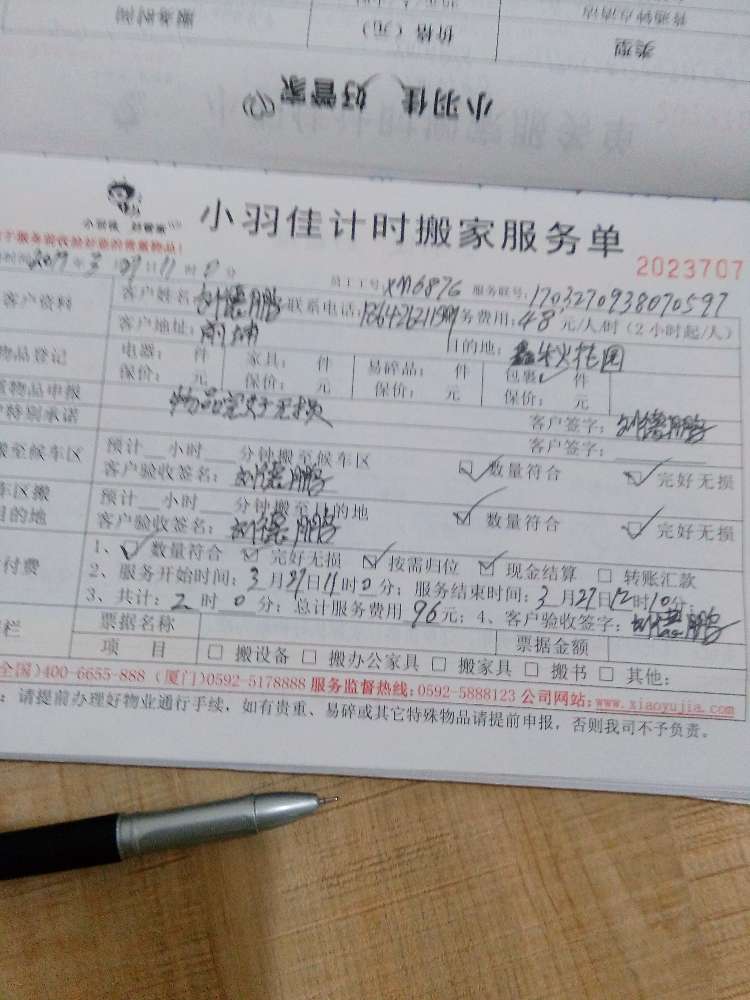 类型 价格（元） 服务时间
小羽佳 好管家
小羽佳 好管家
小羽佳计时搬家服务单
2023707
2017年3月27日11时0分 员工工号：XM6876 服务联号：1703270938070597
客户资料 客户姓名：刘德鹏 联系电话： 务费用：48元/人/时（2小时起/人）
客户地址：前埔 目的地：
物品登记 电器： 件 家具： 件 易碎品： 件 包裹：✓件
保价： 元 保价： 元 保价： 元 保价： 元
物品申报 物品完好无损 客户签字：刘德鹏
特别承诺 客户签字：
搬至候车区 预计__小时__分钟搬至候车区
客户验收签名：刘德鹏 ☑数量符合 ☑完好无损
车区搬 预计__小时__分钟搬至目的地
目的地 客户验收签名：刘德鹏 ☑数量符合 ☑完好无损
付费 1、☑数量符合 ☑完好无损 ☑按需归位 ☑现金结算 □转账汇款
2、服务开始时间：3月27日11时0分；服务结束时间：3月27日12时10分
3、共计：2时0分；总计服务费用96元；4、客户验收签字：刘德鹏
栏 票据名称 票据金额
项 目 □搬设备 □搬办公家具 □搬家具 □搬书 □其他：
全国)400-6655-888 (厦门)0592-5178888 服务监督热线：0592-5888123 公司网站：www.xiaoyujia.com
：请提前办理好物业通行手续，如有贵重、易碎或其它特殊物品请提前申报，否则我司不予负责。